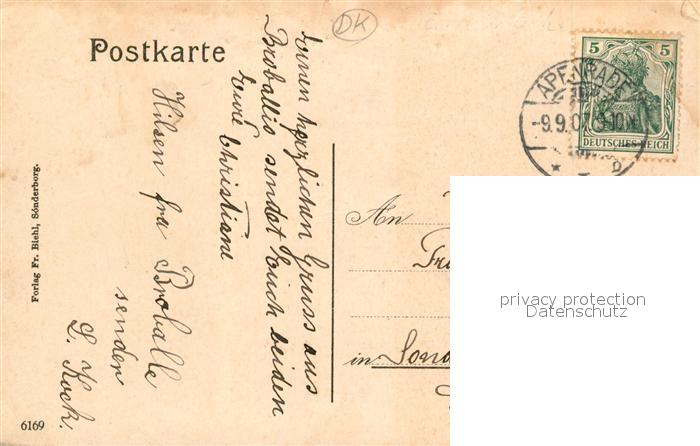 DK
Postkarte
5 5
DEUTSCHES REICH
APENRADE
-9.9.07. 9-10N.
Einen herzlichen Gruss aus
Broballis sendet Euch beiden
Eure Christiane
Hilsen fra Broballe
sender
L. Kock.
Forlag Fr. Biehl, Sönderborg.
An
in
privacy protection
Datenschutz
6169